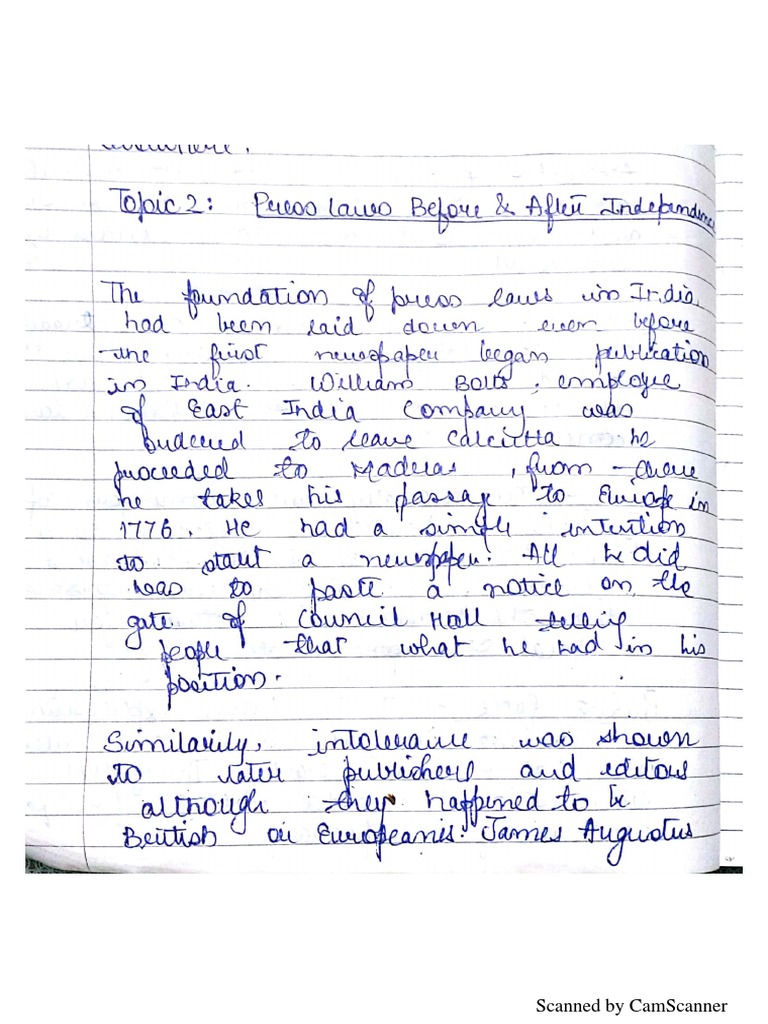 Topic 2: Press laws Before & After Independence
The foundation of press laws in India
had been laid down even before
the first newspaper began publication
in India. William Bolts, employee
of East India Company was
ordered to leave Calcutta he
proceeded to Maderas, from there
he takes his passage to Europe in
1776. He had a simple intention
to start a newspaper. All he did
was to paste a notice on the
gate of Council Hall telling
people that what he had in his
position.
Similarily, intolerance was shown
to later publishers and editors
although they happened to be
British or Europeanis. James Augustus
Scanned by CamScanner